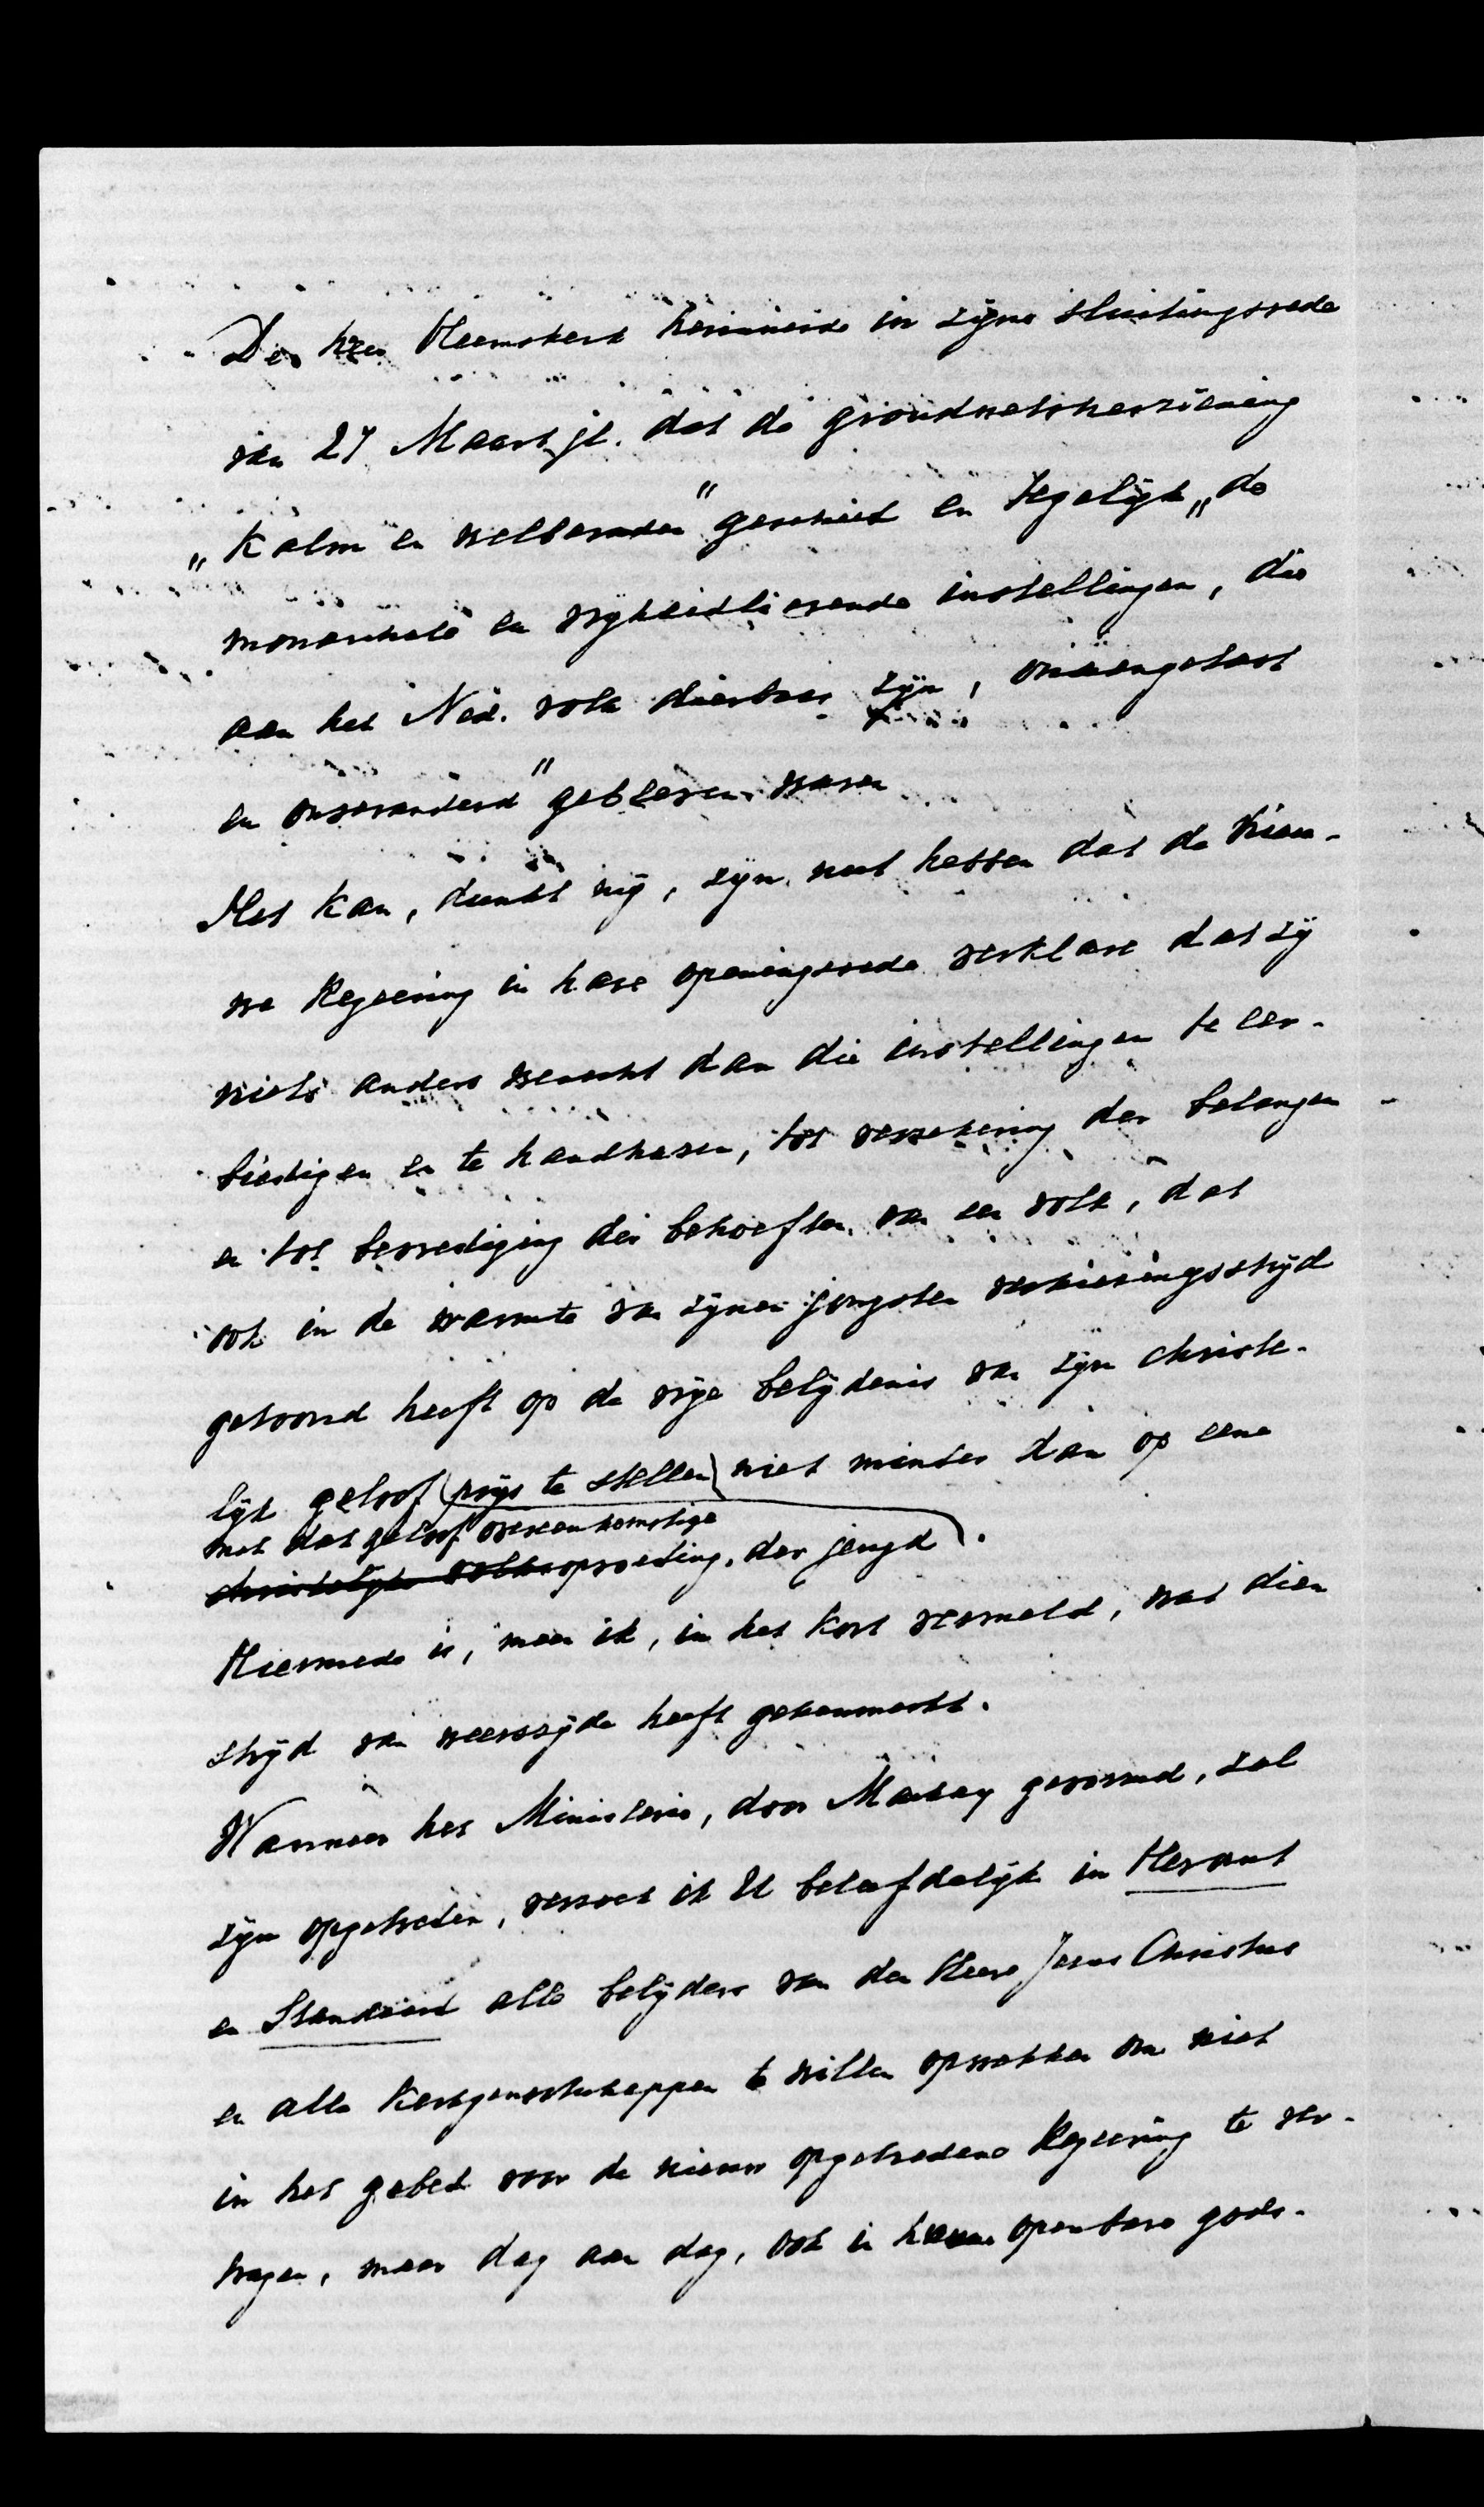 De heer Heemskerk herinnerde in zijne sluitingsrede
van 27 Maart jl. dat de grondwetsherziening
„Kalm en welberaden" geschied en tegelijk „de
monarchale en vrijheidlievende instellingen, die
aan het Ned. volk dierbaar zijn, onaangetast
en onveranderd" gebleven waren
Het kan, dunkt mij, zijn nut hebben dat de nieu-
we Regeering in hare openingsrede verklare dat zij
niets anders wenscht dan die instellingen te eer-
biedigen en te handhaven, tot verzekering der belangen
en tot bevrediging der behoeften van een volk, dat
ook in de warmte van zijnen jongsten verkiezingsstrijd
getoond heeft op de vrije belijdenis van zijn christe-
lijk geloof (prijs te stellen) niet minder dan op eene
met dat geloof overeenkomstige
christelijke volksopvoeding der jeugd.
Hiermede is, meen ik, in het kort vermeld, wat dien
strijd van weerszijde heeft gekenmerkt.
Wanneer het Ministerie, door Mackay gevormd, zal
zijn opgetreden, verzoek ik U beleefdelijk in Heraut
en Standaard alle belijders van den Heere Jesus Christus
en alle Kerkgenootschappen te willen opwekken om niet
in het gebed voor de nieuw opgetredene Regeering te ver-
tragen, maar dag aan dag, ook in hunne openbare gods-